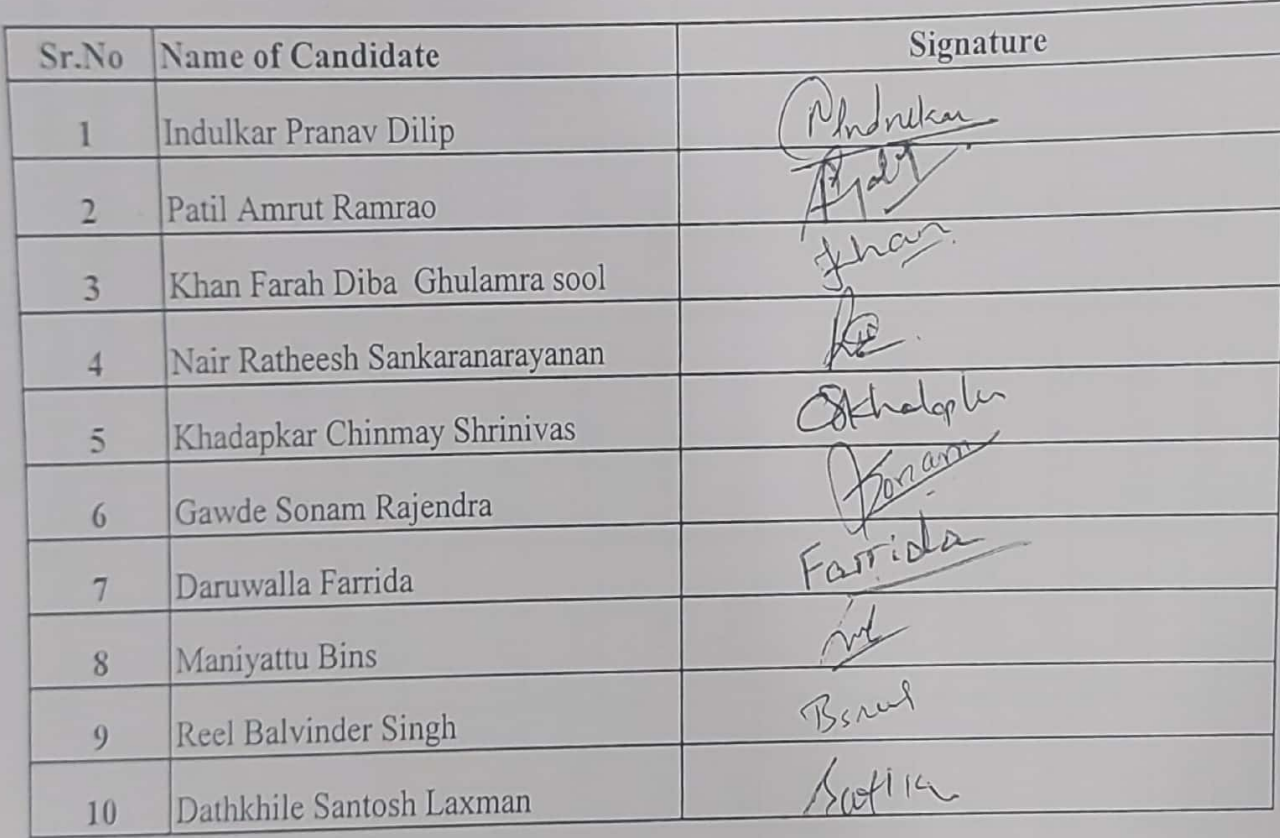 Sr.No Name of Candidate Signature
1 Indulkar Pranav Dilip
2 Patil Amrut Ramrao
3 Khan Farah Diba Ghulamra sool khan
4 Nair Ratheesh Sankaranarayanan
5 Khadapkar Chinmay Shrinivas
6 Gawde Sonam Rajendra Sonam
7 Daruwalla Farrida Farrida
8 Maniyattu Bins
9 Reel Balvinder Singh
10 Dathkhile Santosh Laxman